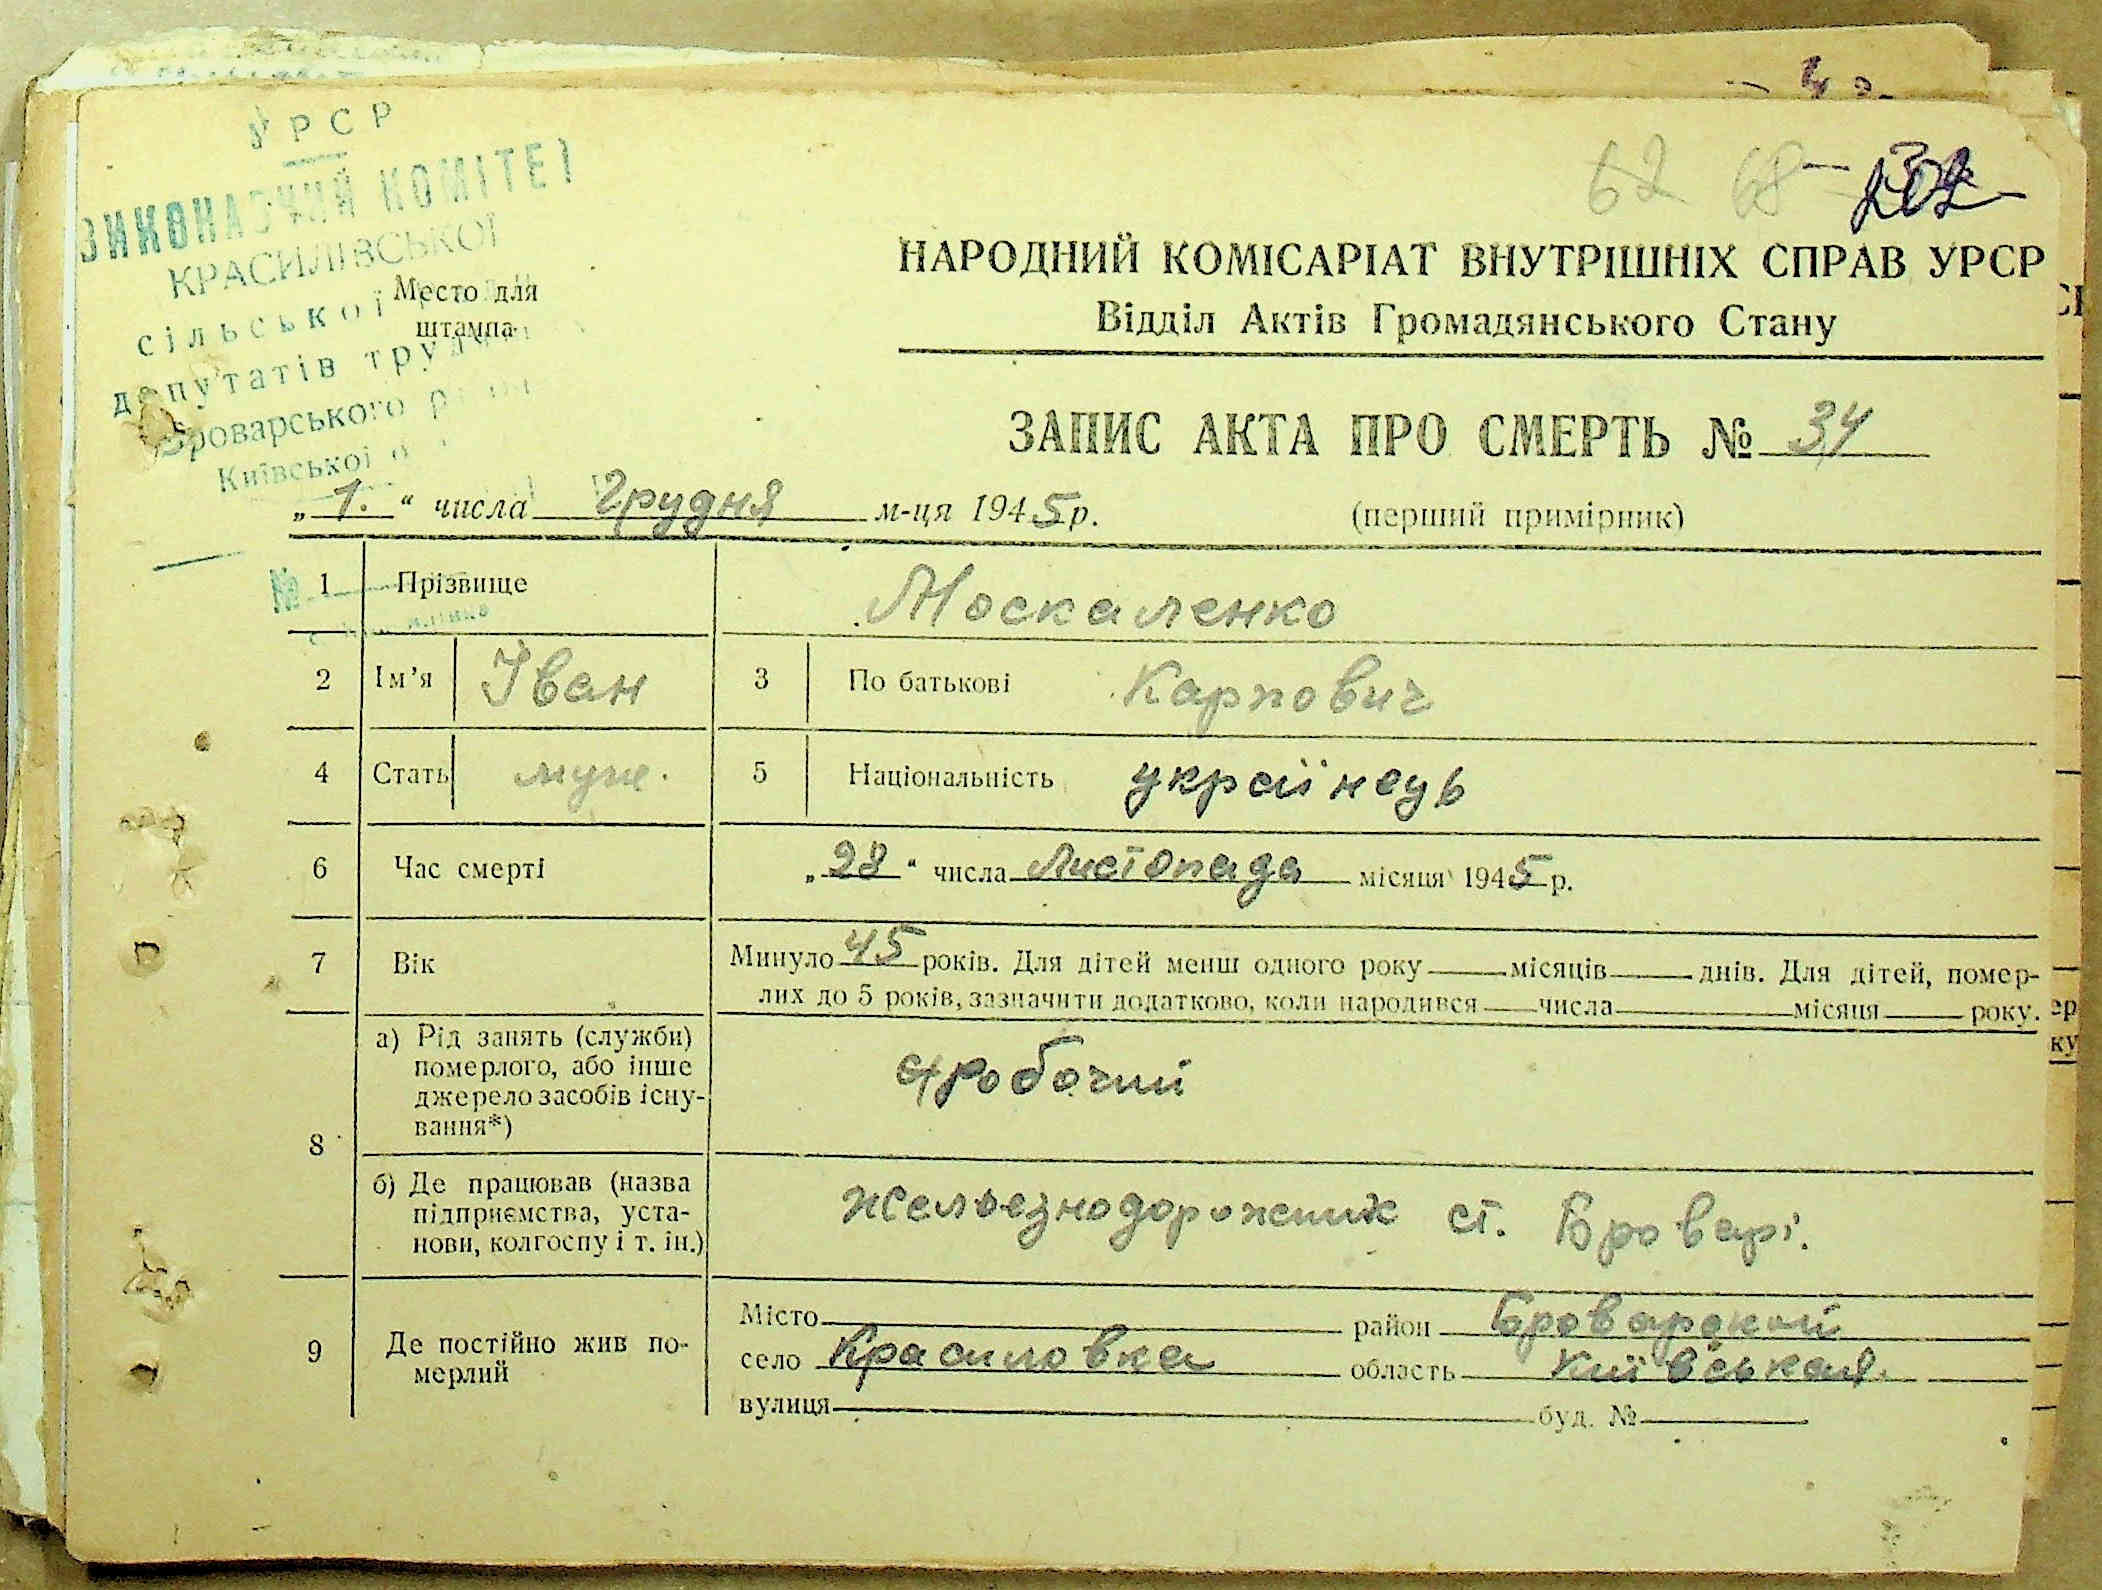 УРСР
ВИКОНАВЧИЙ КОМІТЕТ
КРАСИЛІВСЬКОЇ
сільської
депутатів труд
Броварського
Київської
Место для
штампа
62 68
НАРОДНИЙ КОМІСАРІАТ ВНУТРІШНІХ СПРАВ УРСР
Відділ Актів Громадянського Стану
ЗАПИС АКТА ПРО СМЕРТЬ № 34
„1." числа Грудня м-ця 1945 р. (перший примірник)
1 Прізвище Москаленко
2 Ім'я Іван 3 По батькові Карпович
4 Стать муж. 5 Національність українець
6 Час смерті „28" числа Листопада місяця 1945 р.
7 Вік Минуло 45 років. Для дітей менш одного року місяців днів. Для дітей, помер-
лих до 5 років, зазначити додатково, коли народився числа місяця року.
8 а) Рід занять (служби)
померлого, або інше
джерело засобів існу-
вання*)
робочий
б) Де працював (назва
підприємства, уста-
нови, колгоспу і т. ін.)
железнодорожник ст. Броварі.
9 Де постійно жив по-
мерлий
Місто район Броварский
село Красиловка область Київська
вулиця буд. №